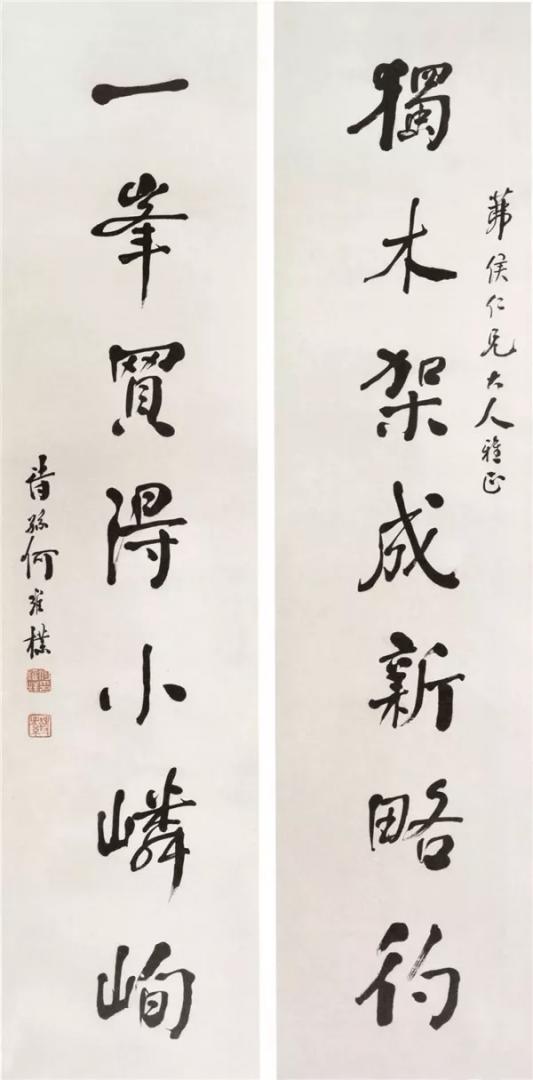 茀侯仁兄大人雅正
獨木架成新略彴
一峯買得小嶙峋
詩孫何維樸